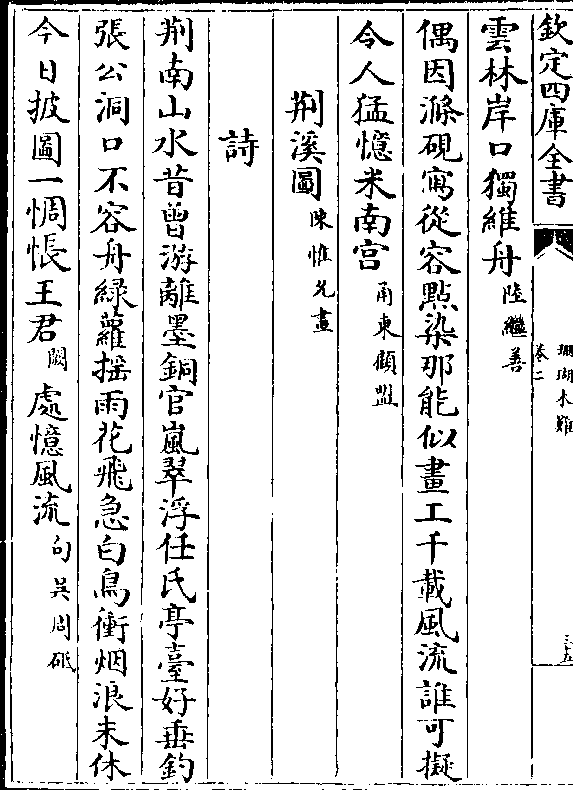 欽定四庫全書
珊瑚木難
卷二
三十五
雲林岸口獨維舟陸繼善
偶因滌硯寫從容點染那能似畫工千載風流誰可擬
令人猛憶米南宮甬東顧盟
荆溪圖陳惟允畫
詩
荆南山水昔曾游離墨銅官嵐翠浮任氏亭臺好垂釣
張公洞口不容舟綠蘿揺雨花飛急白鳥衝烟浪未休
今日披圖一惆悵王君闕處憶風流句吳周砥